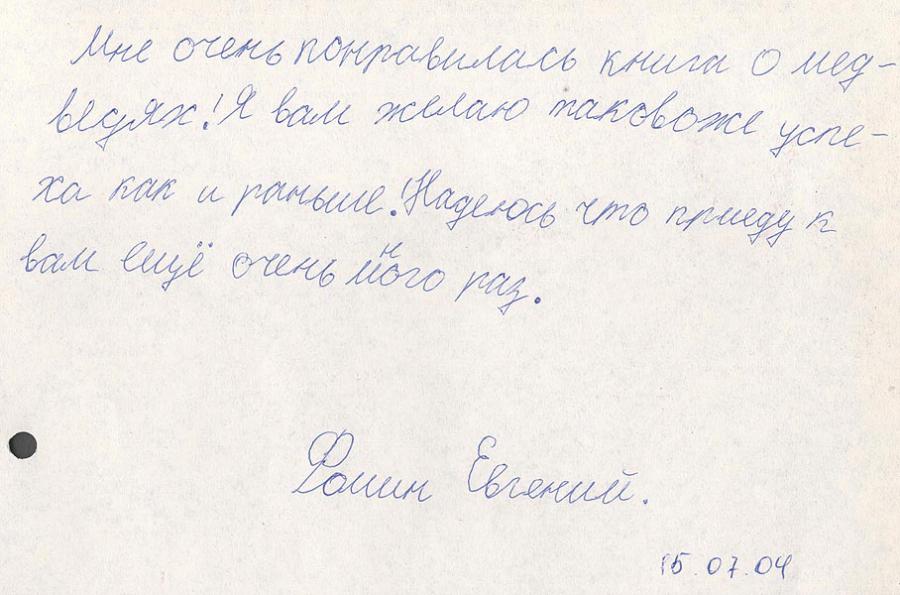 Мне очень понравилась книга о мед-
ведях! Я вам желаю таковоже успе-
ха как и раньше! Надеюсь что приеду к
вам ещё очень много раз.
Фомин Евгений.
15.07.04